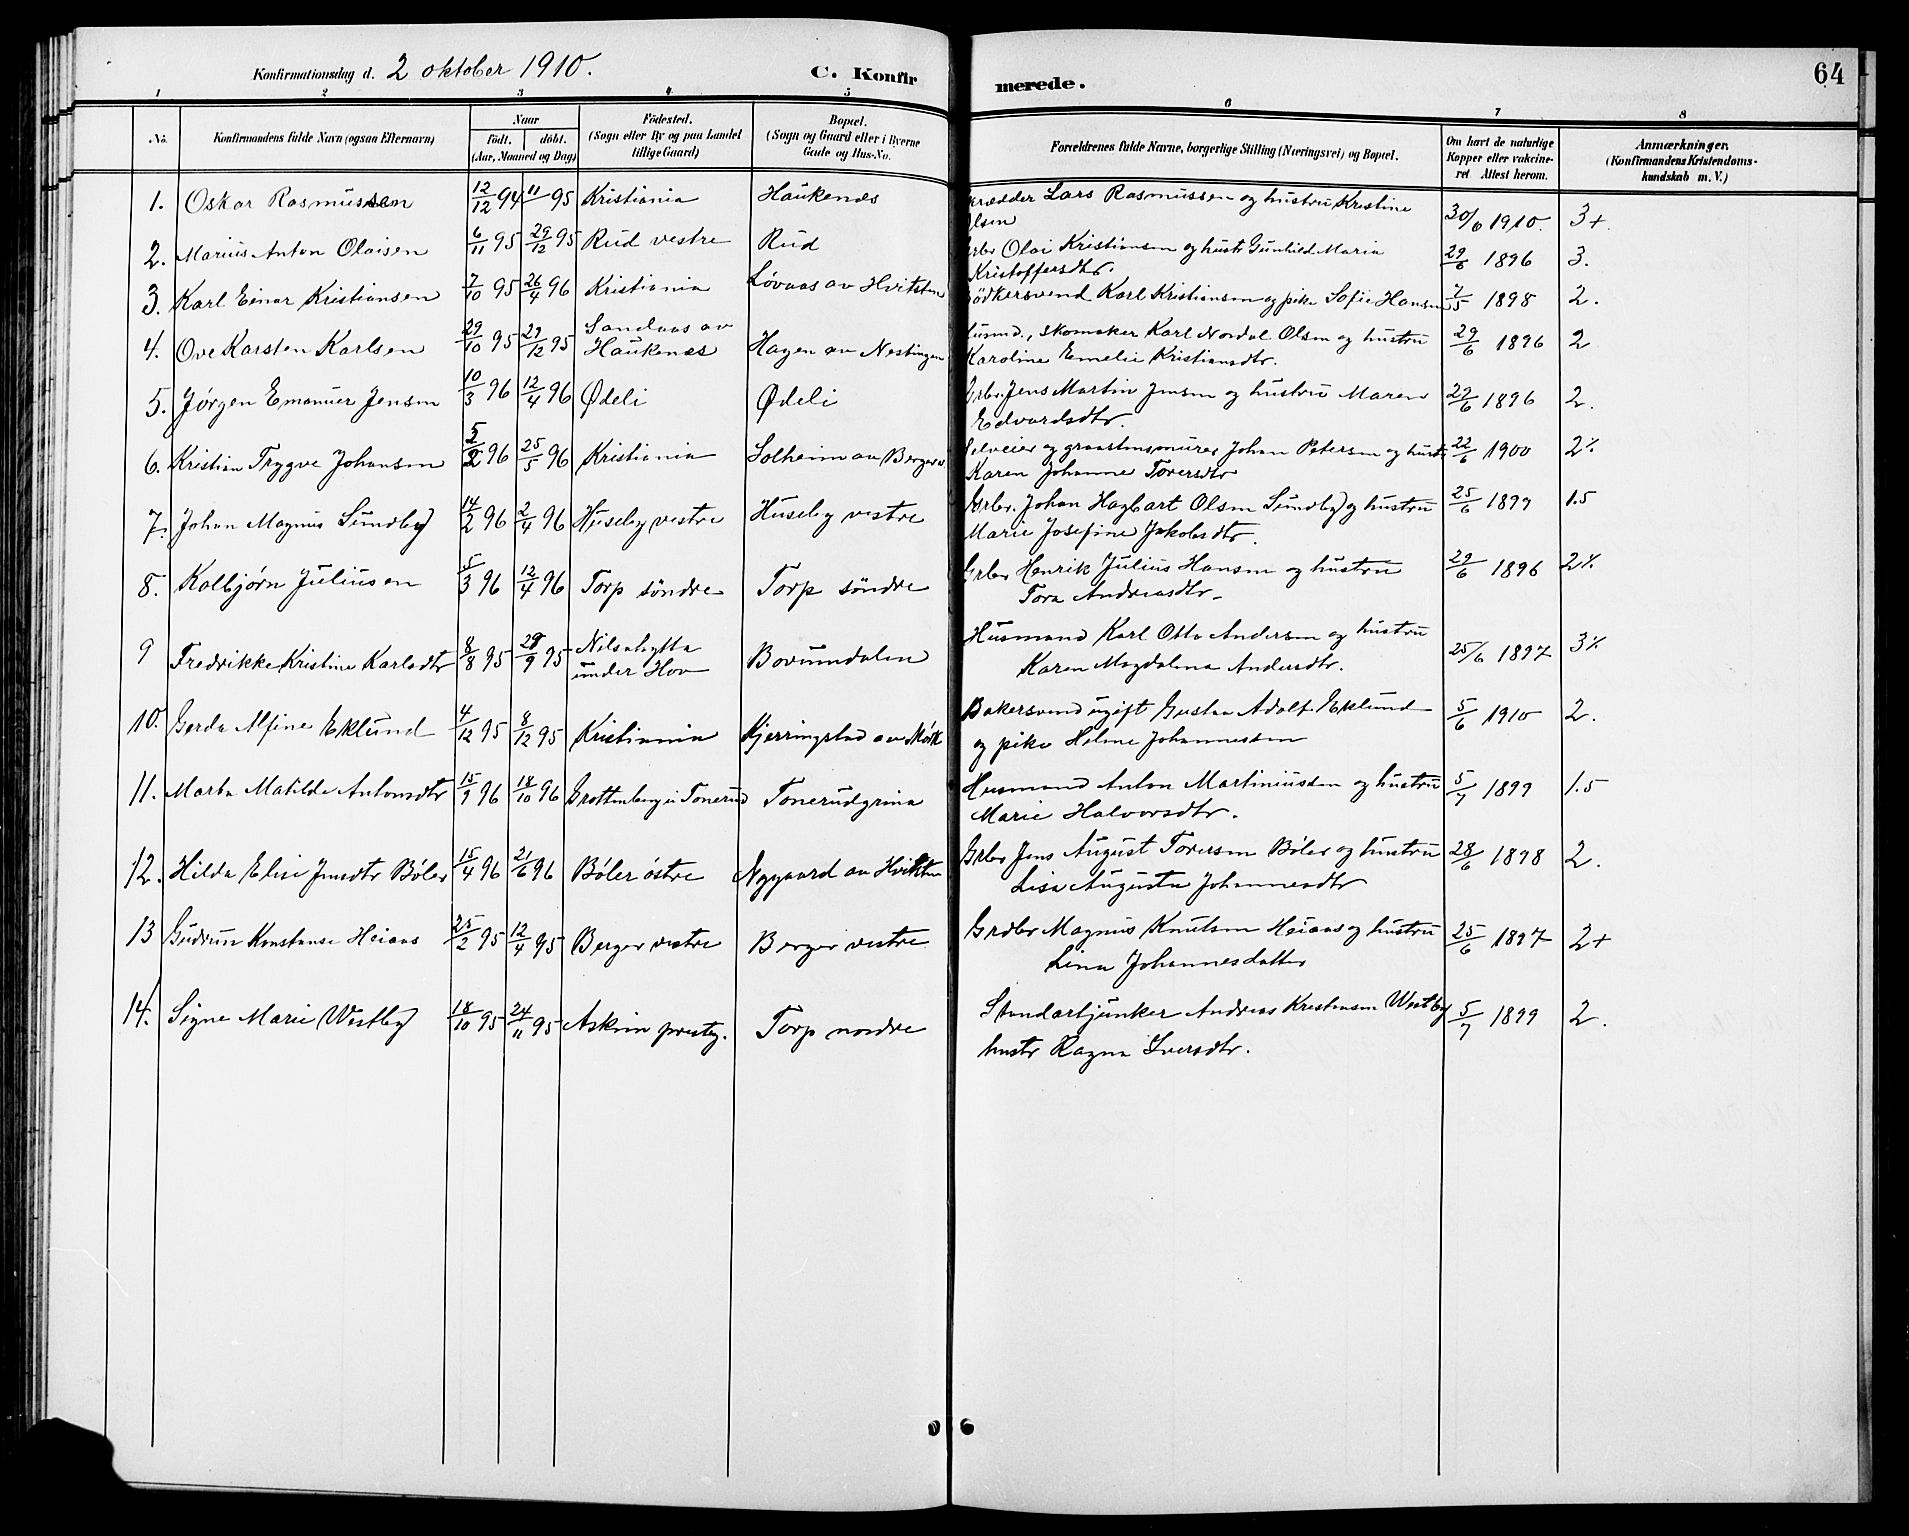 Konfirmationsdag d. 2 oktober 1910. C. Konfir merede. 64
1 2 3 4 5 6 7 8
No. Konfirmandens fulde Navn (ogsaa Efternavn) Naar født. døbt. (Aar, Maaned og Dag) Fødested. (Sogn eller By og paa Landet tillige Gaard) Bopæl. (Sogn og Gaard eller i Byerne Gade og Hus-No. Forældrenes fulde Navne, borgerlige Stilling (Næringsvei) og Bopæl. Om havt de naturlige Kopper eller vakcineret. Attest herom. Anmærkninger. (Konfirmandens Kristendomskundskab m. V.)
1. Oskar Rasmussen 12/12 94 11 95 Kristiania Haukenæs rædder Lars Rasmussen og hustru Kristine 30/6 1910. 3+
lsen
2. Marius Anton Olaisen 6/11 95 29/12 95 Rud vestre Rud rbr Olai Kristiansen og hustr Gunhild Maria 29/6 1896 3.
Kristoffersdtr.
3. Karl Einar Kristiansen 7/10 95 26/4 96 Kristiania Løvaas av Hvitsten ødkersvend Karl Kristiansen og pike Sofie Hansen 7/5 1898 2.
4. Ove Karsten Karlsen 29/10 95 29/12 95 Sandaas av Haukenæs Hagen av Nestingen usmd., skomaker Karl Nordal Olsen og hustru 29/6 1896 2
Karoline Emelie Kristiansdtr.
5. Jørgen Emanuer Jensen 10/3 96 12/4 96 Ødeli Ødeli Grbr. Jens Martin Jensen og hustru Maren 29/6 1896 2.
Edvardsdtr.
6. Kristian Trygve Johansen 5/2 96 25/5 96 Kristiania Solheim av Berger v. Selveier og graastensmurer Johan Petersen og hustr 22/6 1900 2 ٪
Karen Johanne Torersdtr
7. Johan Magnus Sundby 14/2 96 2/4 96 Huseby vestre Huseby vestre Grbr. Johan Hagbart Olsen Sundby og hustru 25/6 1899 1.5
Marie Josefine Jakobsdtr.
8. Kolbjørn Juliusen 5/3 96 12/4 96 Torp søndre Torp søndre Grbr Henrik Julius Hansen og hustru 29/6 1896 2 ٪
Tora Andreasdtr.
9 Fredrikke Kristine Karlsdtr 8/8 95 29/9 95 Nilsahytta under Hov Bovumdalen Husmand Karl Otto Andersen og hustru 25/6 1897 3 ٪
Karen Magdalena Andersdtr.
10. Gerda Alfine Eklund 4/12 95 8/12 95 Kristiania Kjerringstad av Mørk Bakersvend ugift Gustav Adolf Eklund 5/6 1910 2.
og pike Helene Johannessen
11. Marta Matilda Antonsdtr 15/9 96 18/10 96 Grottenberg i Tonerud Tonerudgrina Husmand Anton Martiniussen og hustru 5/7 1899 1.5
Marie Halvorsdtr.
12. Hilda Elise Jensdtr Bøler 15/4 96 21/6 96 Bøler østre Nygaard av Hvitsten Grbr Jens August Torersen Bøler og hustru 28/6 1898 2.
Lisa Augusta Johannesdtr
13 Gudrun Konstanse Heiaas 25/2 95 12/4 95 Berger vestre Berger vestre Grdbr Magnus Knutsen Heiaas og hustru 25/6 1897 2+
Lina Johannesdatter
14. Signe Marie Westby 18/10 95 24/11 95 Askim prestg. Torp nordre Standartjunker Andreas Kristiansen Westby 5/7 1899 2.
hustr Ragna Iversdtr.